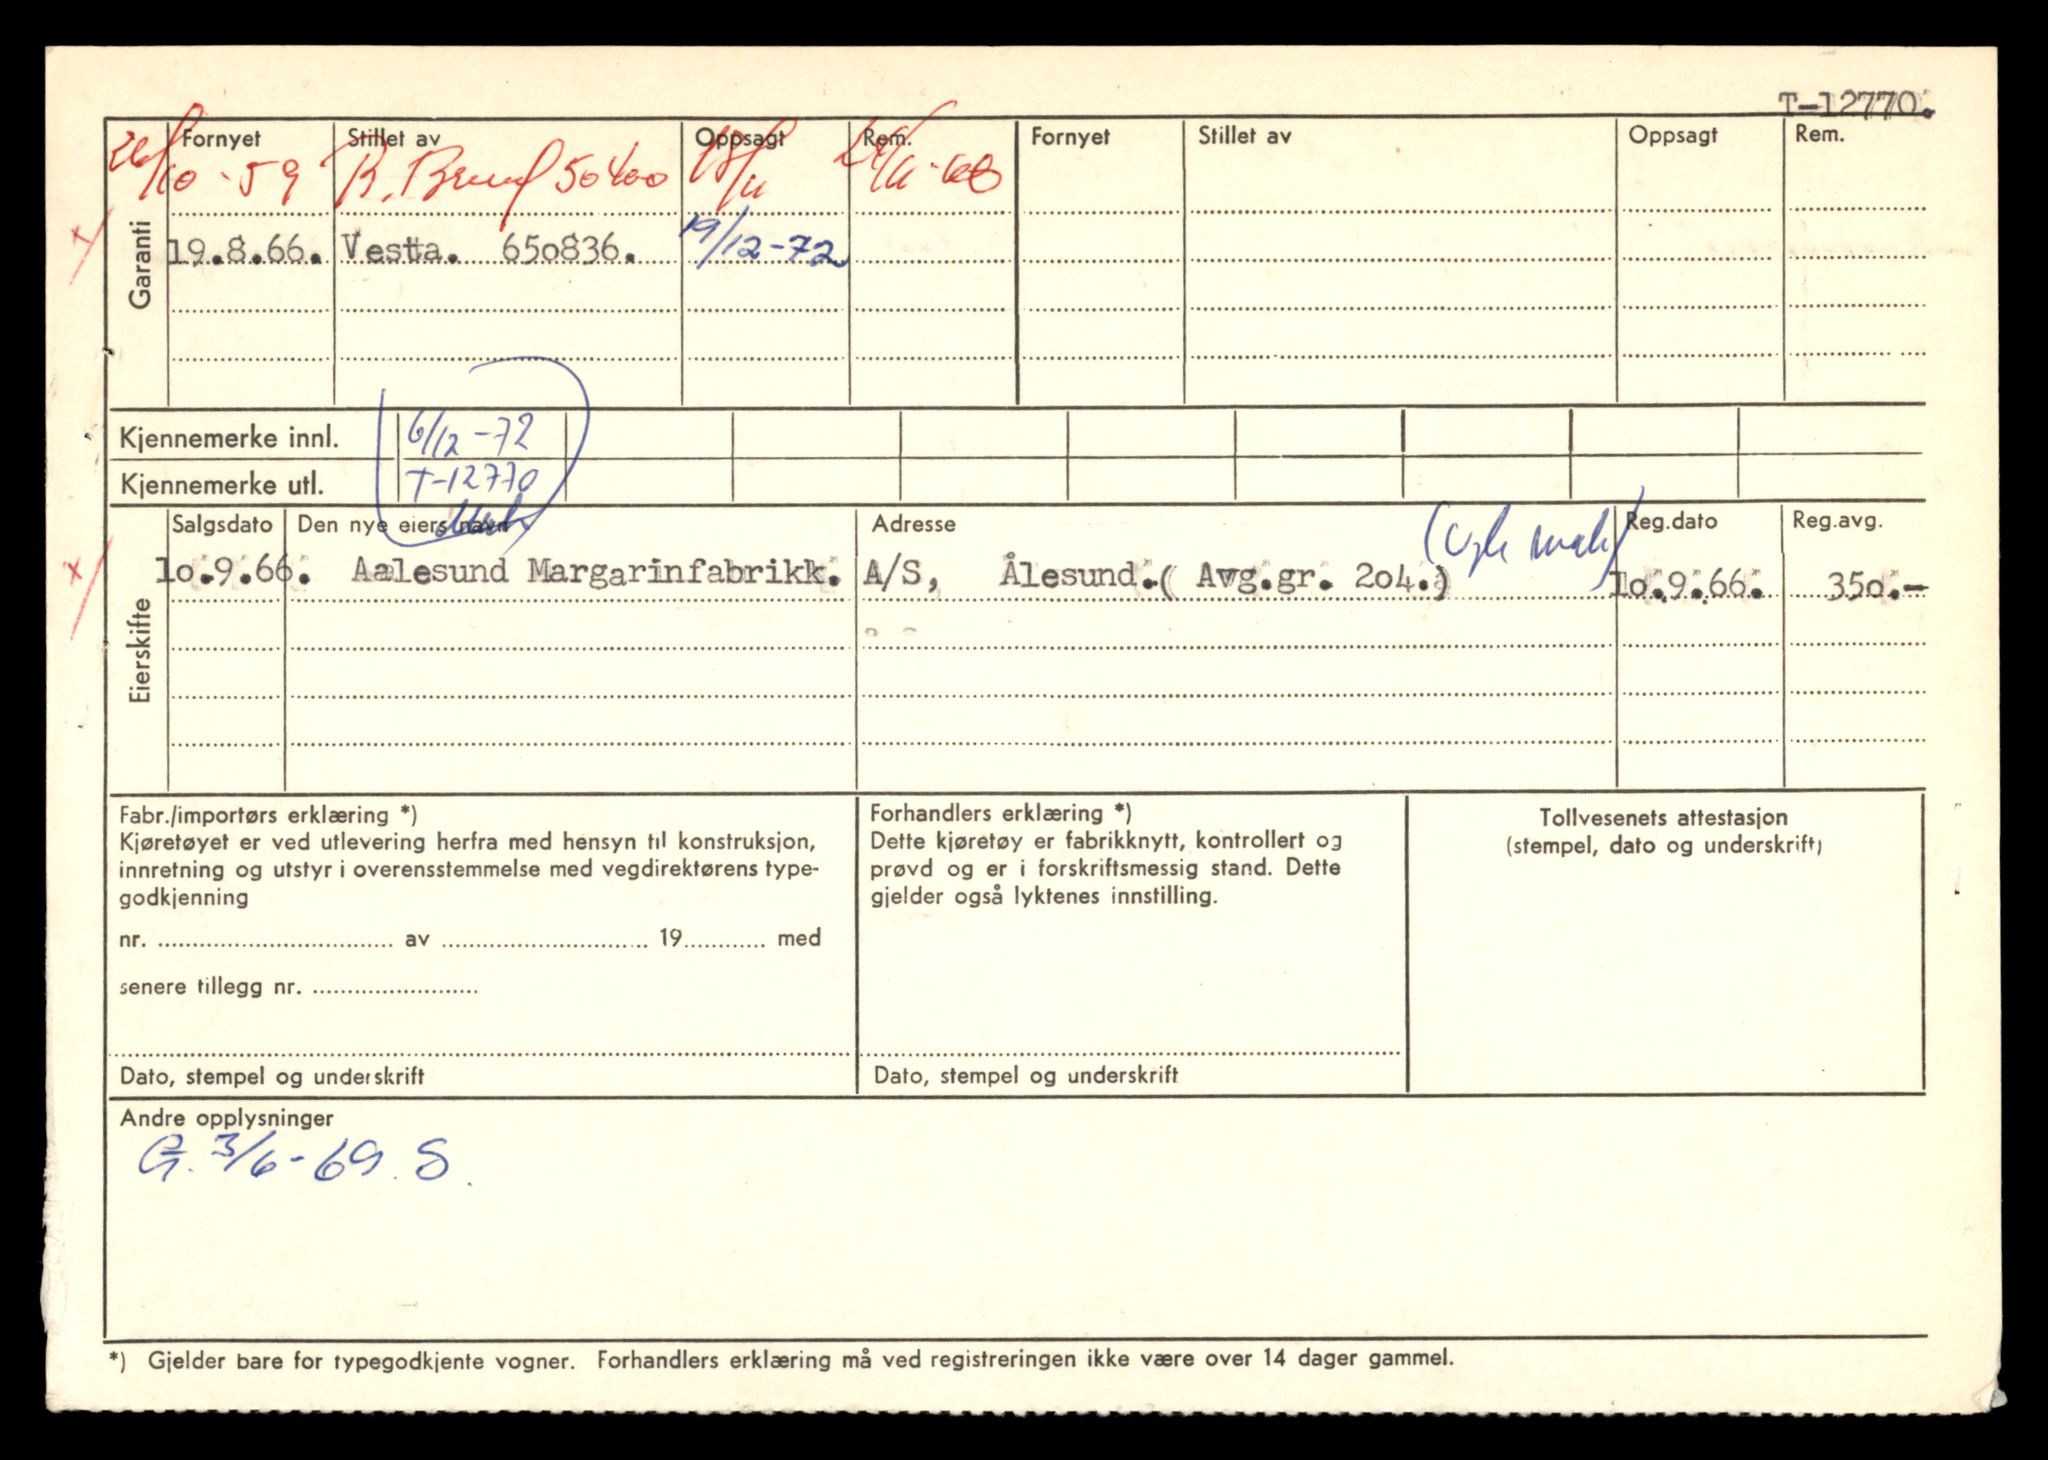 T-12770.
Fornyet Stillet av Oppsagt Rem. Fornyet Stillet av Oppsagt Rem.
26/10-59 50400 18/11
Garanti
19.8.66. Vestta. 650836. 19/12-72
Kjennemerke innl. 6/12-72
Kjennemerke utl. T-12770
Salgsdato Den nye eiers navn Adresse Reg.dato Reg.avg.
Eierskifte
10.9.66. Aalesund Margarinfabrikk. A/S, Ålesund.( Avg.gr. 204.) 10.9.66. 350.-
Fabr./importørs erklæring *)
Kjøretøyet er ved utlevering herfra med hensyn til konstruksjon,
innretning og utstyr i overensstemmelse med vegdirektørens type-
godkjenning
nr. .................................. av .............................. 19............ med
senere tillegg nr. ........................
Dato, stempel og underskrift
Forhandlers erklæring *)
Dette kjøretøy er fabrikknytt, kontrollert og
prøvd og er i forskriftsmessig stand. Dette
gjelder også lyktenes innstilling.
Dato, stempel og underskrift
Tollvesenets attestasjon
(stempel, dato og underskrift)
Andre opplysninger
G. 3/6-69. S.
*) Gjelder bare for typegodkjente vogner. Forhandlers erklæring må ved registreringen ikke være over 14 dager gammel.